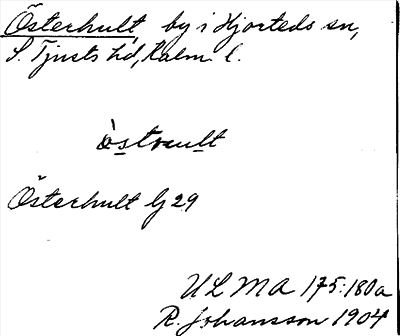 Österhult, by i Hjorteds sn,
S. Tjusts hd, Kalm. l.
östrult
Österhult G 29
ULMA 175:180a
R. Johansson 1904